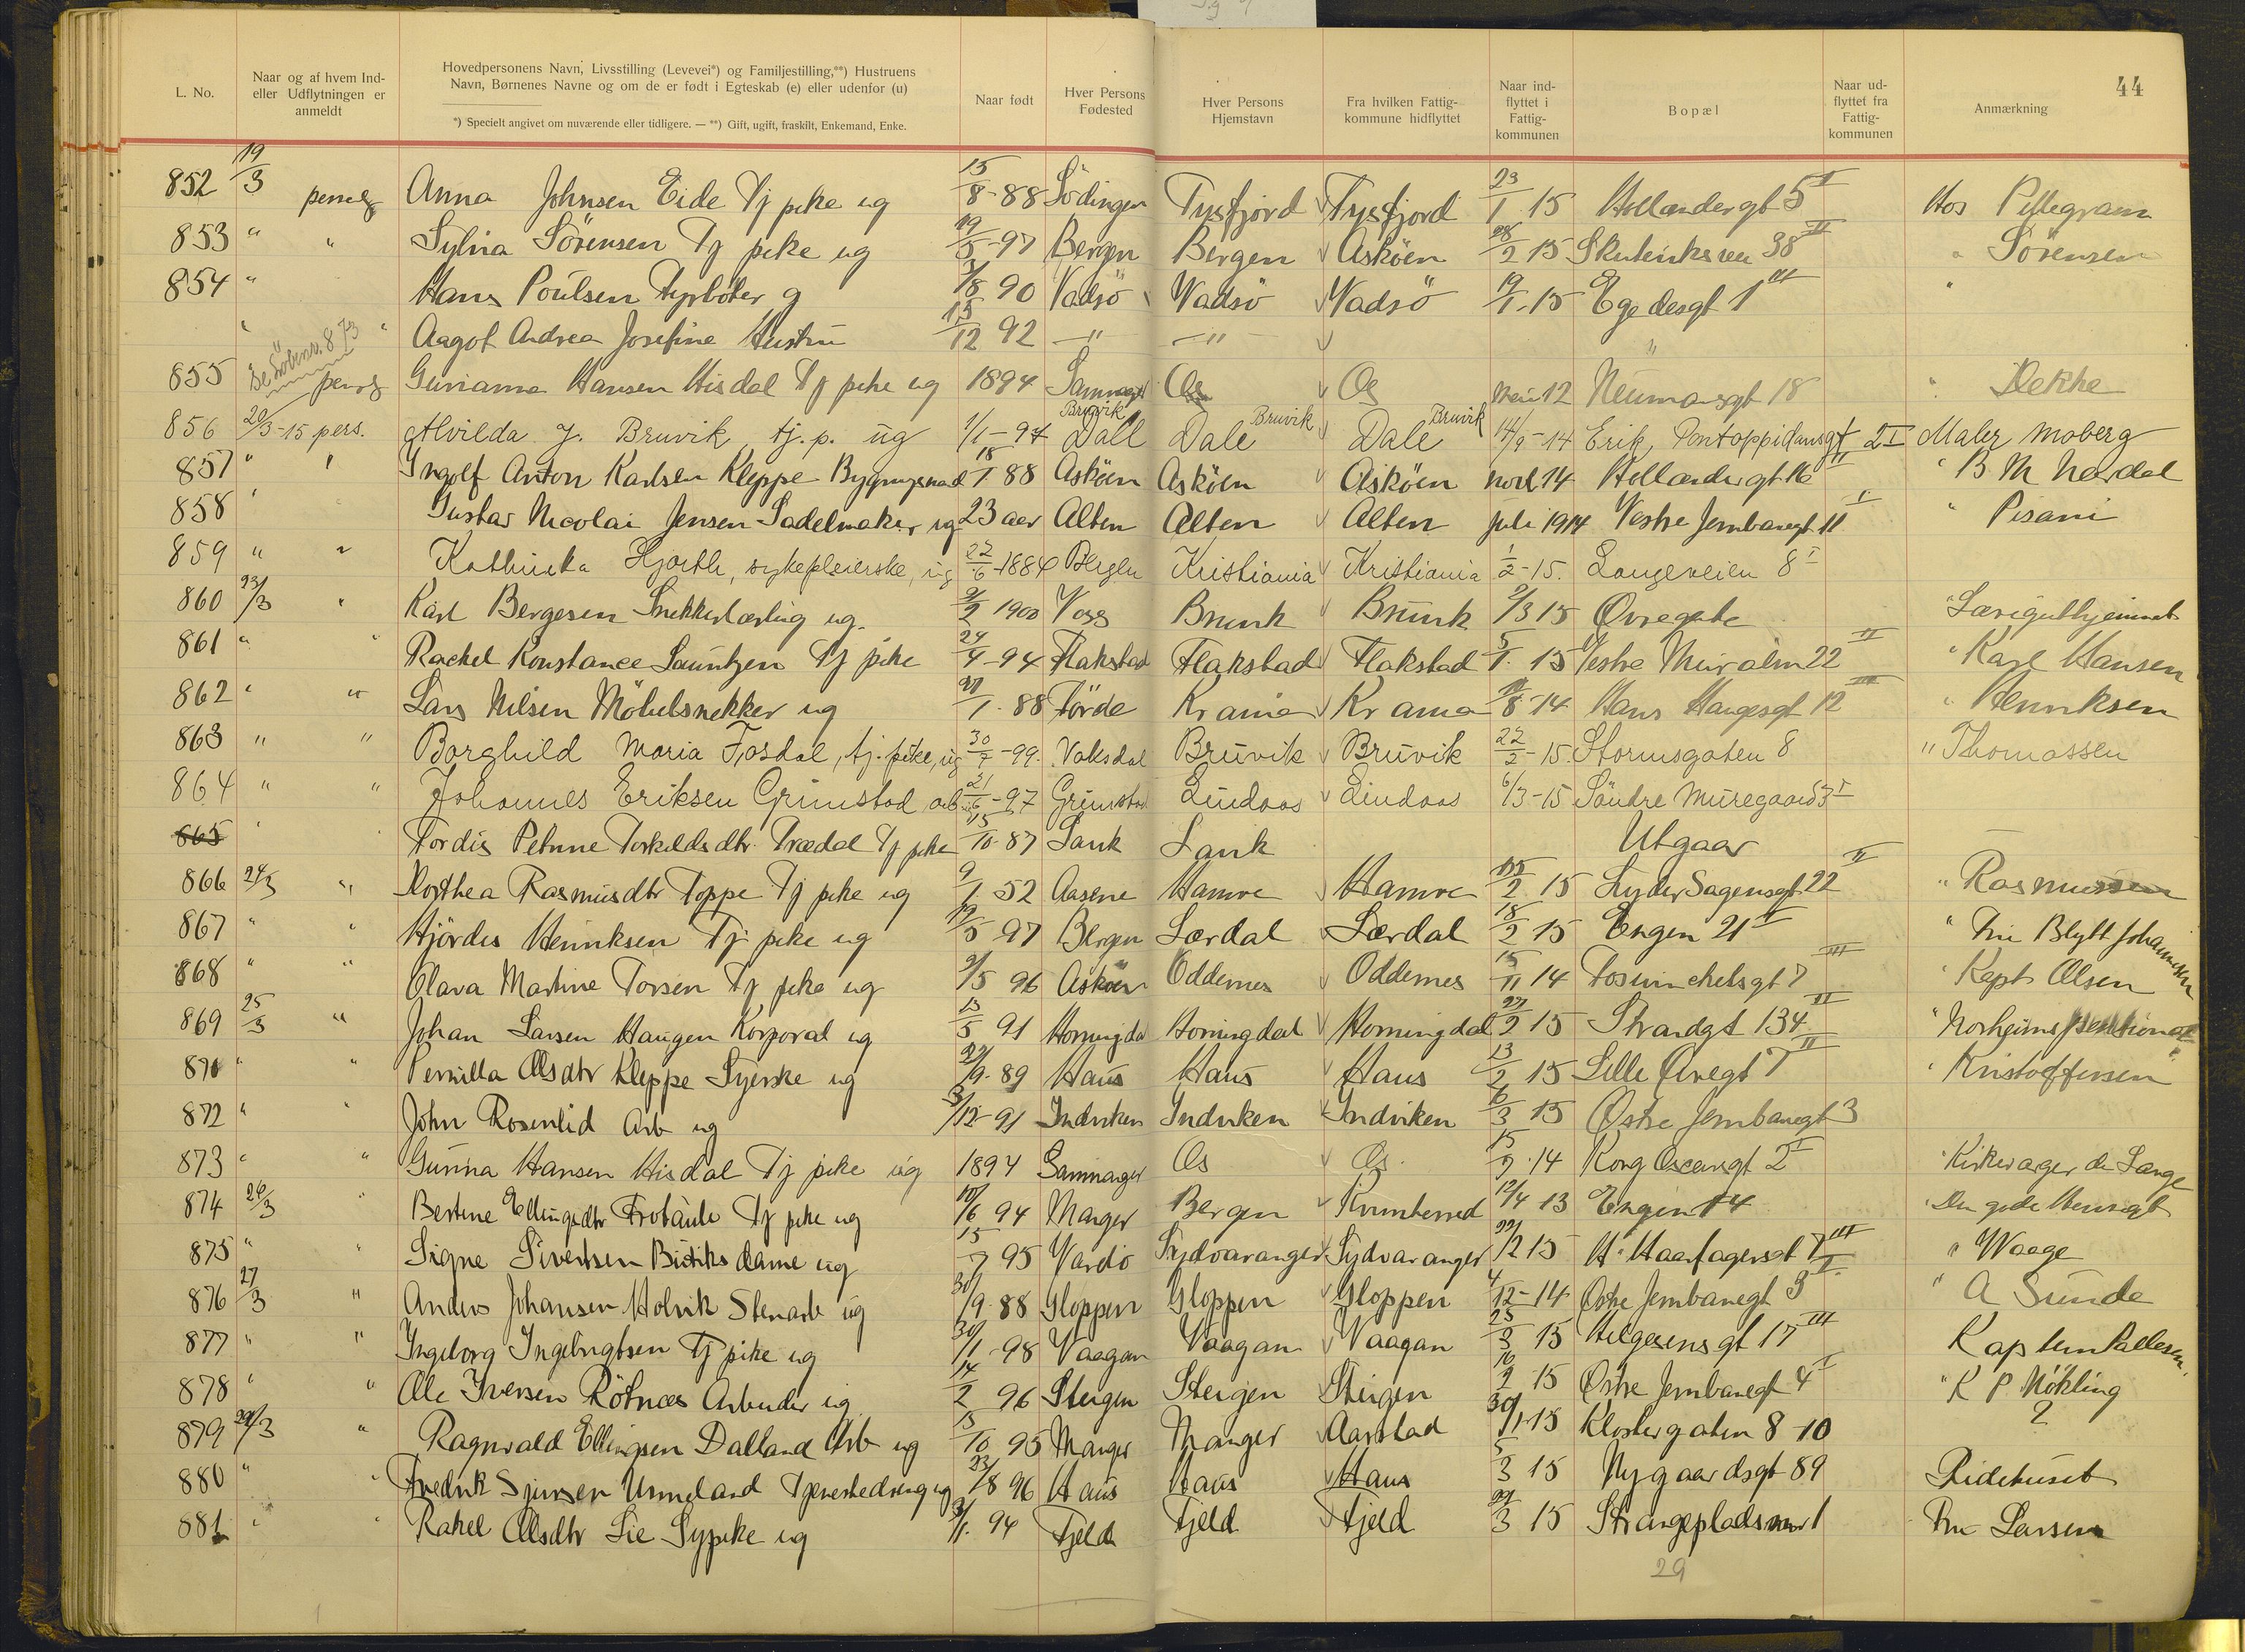 44
L. No. Naar og af hvem Ind- eller Udflytningen er anmeldt Hovedpersonens Navn, Livsstilling (Levevei*) og Familjestilling,**) Hustruens Navn, Børnenes Navne og om de er født i Egteskab (e) eller udenfor (u) Naar født Hver Persons Fødested Hver Persons Hjemstavn Fra hvilken Fattig- kommune hidflyttet Naar ind- flyttet i Fattig- kommunen Bopæl Naar ud- flyttet fra Fattig- kommunen Anmærkning
*) Specielt angivet om nuværende eller tidligere. — **) Gift, ugift, fraskilt, Enkemand, Enke.
852 19/3 Anna Johnsen Eide Tj pike ug 15/8-88 Lödingen Tysfjord Tysfjord 23/1 15 Hollendergt 5 II Hos Pillegram
853 " " Sylvia Sörensen Tj pike ug 19/5-97 Bergen Bergen Asköen 28/2 15 Skuteviksvei 38 II " Sörensen
854 " Hans Poulsen Fyrböter g 3/8 90 Vadsö Vadsö Vadsö 19/1-15 Egedesgt 1 III "
" " Aagot Andrea Josefine Hustru 15/12 92 —"— —"— "
855 Se Löbnr. 873 Hansen Hisdal Tj pike ug 1894 Samnager Os Os 12 Neumansgt 18 " Dekke
856 20/3-15 pers. Alvilda J. Bruvik, tj.p. ug 1/1-94 Bruvik Dale Dale Bruvik Dale Bruvik 14/9-14 Erik Pontoppidansgt 2 I Maler Moberg
857 " " Ingolf Anton Karlsen Kleppe 18/1 88 Asköen Asköen Asköen novb 14 Hollendergt 16 II " B M Nerdal
858 " " Gustav Nicolai Jensen Sadelmaker ug 23 aar Alten Alten Alten juli 1914 Vestre Jernbanegt 11 I " Pisani
859 " " Kathinka Hjorth, sykepleierske, ug 22/6-1884 Bergen Kristiania Kristiania 1/2-15. Langeveien 8 I
860 23/3 " Karl Bergesen Snekkerlærling ug. 9/2 1900 Voss Bruvik Bruvik 9/3 15 Øvregate " Lærlinghjemmet
861 " " Rachel Konstance Lauritzen Tj pike 24/4-94 Flakstad Flakstad Flakstad 5/1. 15 Vestre Muralm 22 II " Karl Hansen
862 " " Lars Nilsen Möbelsnekker ug 27/1-88 Förde Krania Krania 8-14 Hans Haugesgt 12 III " Henriksen
863 " " Borghild Maria Fosdal, tj.pike, ug 30/7-99. Vaksdal Bruvik Bruvik 22/2-15. Stormsgaten 8 " Thomassen
864 " " Johannes Eriksen Grimstad, arb. 21/6-97 Grimstad Lindaas Lindaas 6/3-15 Söndre Muregaard 3 I
865 " Tordis Petrine Torkildsdtr Trædal Tj pike 15/10-87 Lavik Lavik Utgaar
866 24/3 " Dorthea Rasmusdtr Toppe Tj pike ug 9/1 52 Aasene Hamre Hamre 2 15 Lyder Sagensgt 22 II " Rasmussen
867 " " Hjördis Henriksen Tj pike ug 19/5 97 Bergen Lærdal Lærdal 18/2 15 Engen 21 II " Fru Blytt Johannesen
868 " " Olava Martine Torsen Tj pike ug 9/5 96 Asköen Oddernes Oddernes 15/11 14 Foswinckelsgt 7 III " Kapt Olsen
869 25/3 " Johan Larsen Haugen Korporal ug 13/5 91 Horningdal Horningdal Horningdal 22/2 15 Strandgt 134 III " Norheims pensionat
870 " " Pernilla Olsdtr Kleppe Syerske ug 27/9-89 Haus Haus Haus 13/2 15 Lille Øvregt 7 II " Kristoffersen
872 " " John Rosenlid Arb ug 3/12-91 Indviken Indviken Indviken 6/3 15 Østre Jernbanegt 3
873 " " Gunna Hansen Hisdal Tj pike ug 1894 Samnager Os Os 15/9-14 Kong Oscarsgt 2 I " Kirkeværge de Lange
874 26/3 " Bertine Ellingsdtr Tj pike ug 10/6 94 Manger Bergen Kvinherred 12/4 13 Engen 14 " Den gode Hensigt
875 " " Signe Sivertsen Butiksdame ug 15/7 95 Vardö Sydvaranger Sydvaranger 22/2 15 H. Haarfagersgt 7 III " Waage
876 27/3 " Anders Johansen Holvik Stenarb ug 30/9-88 Gloppen Gloppen Gloppen 4/12-14 Østre Jernbanegt 3 I " A Sunde
877 " " Ingeborg Ingebrigtsen Tj pike ug 30/1-98 Vaagan Vaagan Vaagan 25/3 15 Helgesensgt 17 III Kaptein Pallesen
878 " " Ole Iversen Rötnæs Arbeider ug 14/2 96 Steigen Steigen Steigen 16/2 15 Østre Jernbanegt 4 I " K P Nökling
879 29/3 " Ragnvald Ellingsen Dalland Arb ug 15/10 95 Manger Manger Aarstad 30/1-15 Klostergaten 8-10 ?
880 " " Fredrik Sjursen Urmeland ug 23/8 96 Haus Haus Haus 5/3 15 Nygaardsgt 89 Ridehuset
881 " " Rakel Olsdtr Lie Sypike ug 3/1. 94 Fjeld Fjeld Fjeld 22/3 15 Strangepladsen 1 Fru Larsen
29